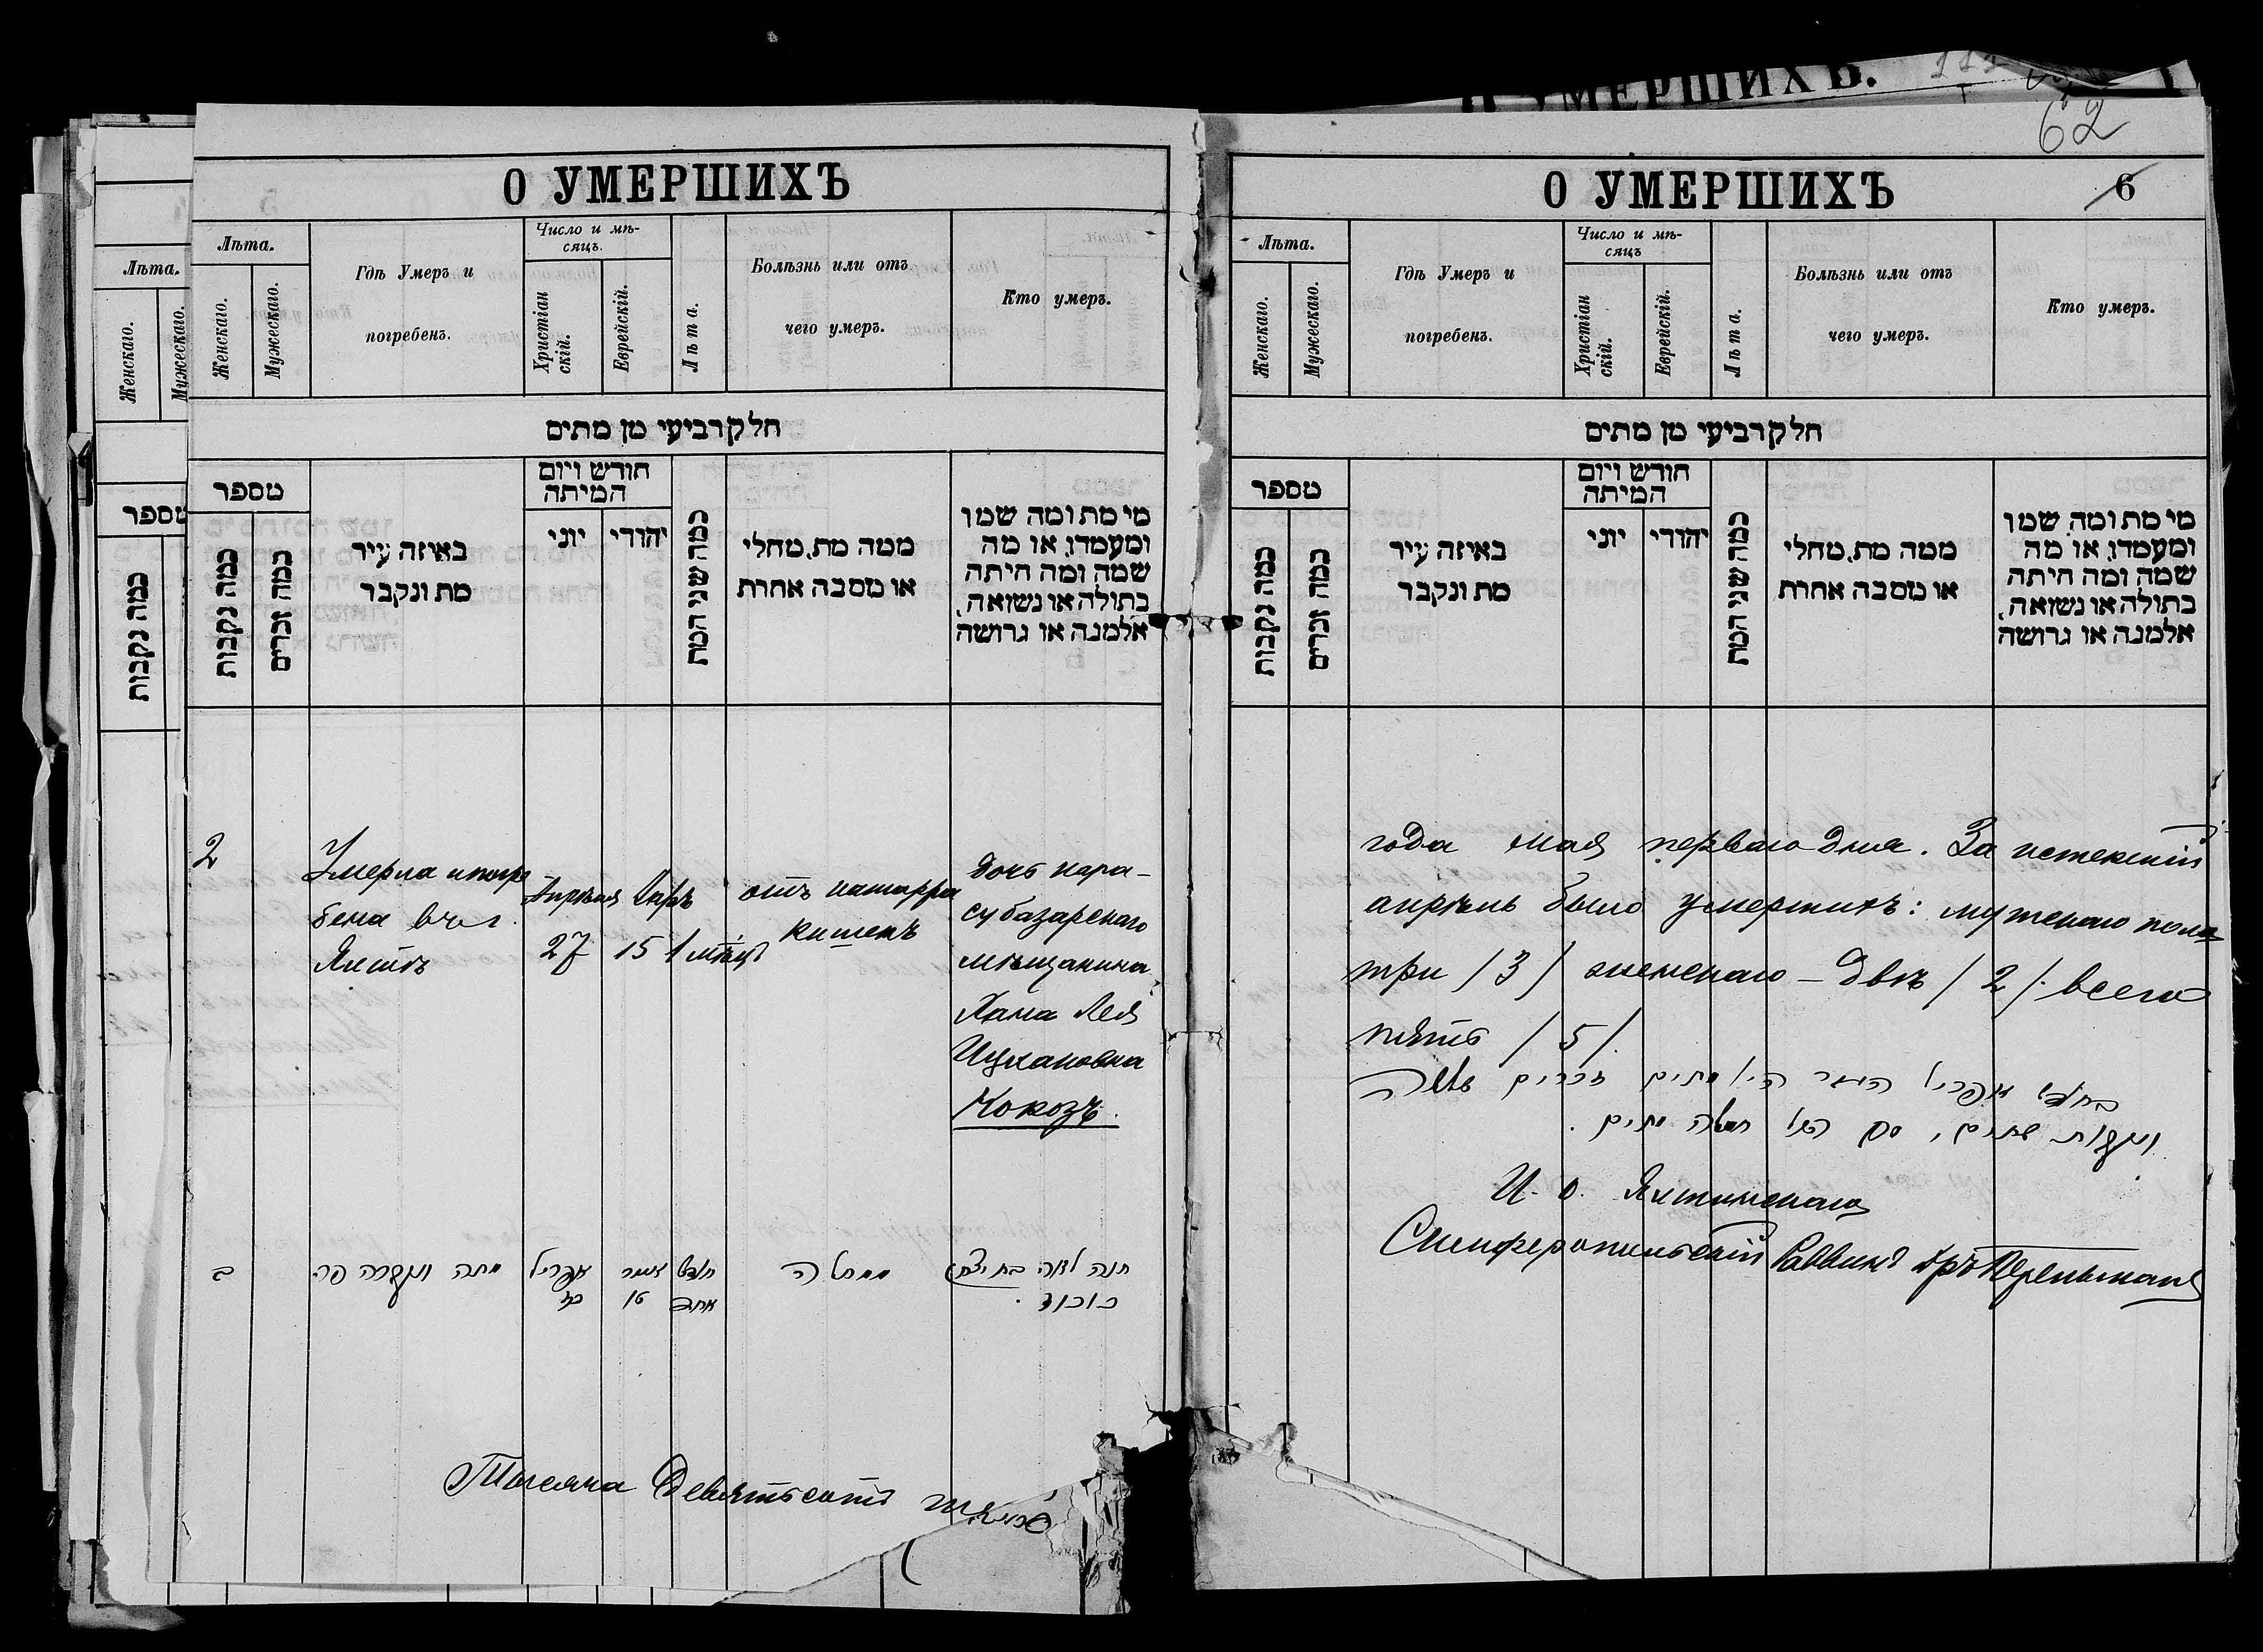 О УМЕРШИХЪ
Лѣта.
Женскаго.
Мужескаго.
Лѣта.
Женскаго.
Мужескаго.
Гдѣ Умеръ и
погребенъ.
Число и мѣ-
сяцъ.
Христіан
скій.
Еврейскій.
Лѣта.
Болѣзнь или отъ
чего умеръ.
Кто умеръ.
חלק רביעי מן מתים
מספר
כמה נקבות
מספר
כמה נקבות
כמה זכרים
באיזה עיר
מת ונקבר
חודש ויום
המיתה
יוני
יהודי
כמה שני המת
ממה מת, מחלי
או מסבה אחרת
מי מת ומה שמו
ומעמדו, או מה
שמה ומה היתה
בתולה או נשואה,
אלמנה או גרושה
2
Умерла и погре
бена въ г.
Ялтѣ
Апрѣля
27
Іаръ
15
1 мѣсяцъ
отъ катарра
кишекъ
дочь кара-
субазарскаго
мѣщанина
Хана Лея
Ицхаковна
Кокозъ.
ב
מתה ונקברה פה
אפריל
כז
אייר
טו
חודש
אחד
ממחלה
חנה לאה בת יצחק
כוכוז.
Тысяча девятьсотъ
О УМЕРШИХЪ
6
62
О УМЕРШИХЪ.
Лѣта.
Женскаго.
Мужескаго.
Гдѣ Умеръ и
погребенъ.
Число и мѣ-
сяцъ
Христіан
скій.
Еврейскій.
Лѣта.
Болѣзнь или отъ
чего умеръ.
Кто умеръ.
חלק רביעי מן מתים
מספר
כמה נקבות
כמה זכרים
באיזה עיר
מת ונקבר
חודש ויום
המיתה
יוני
יהודי
כמה שני המת
ממה מת, מחלי
או מסבה אחרת
מי מת ומה שמו
ומעמדו, או מה
שמה ומה היתה
בתולה או נשואה,
אלמנה או גרושה
года мая перваго дня. За истекшій
апрѣль было умершихъ: мужскаго пола
три /3/ женскаго – двѣ /2/. всего
пять /5/.
בחודש אפריל העבר היו מתים זכרים שלשה
ונקבות שתים, סך הכל חמשה מתים.
И. о. Ялтинскаго
Симферопольскій Раввинъ